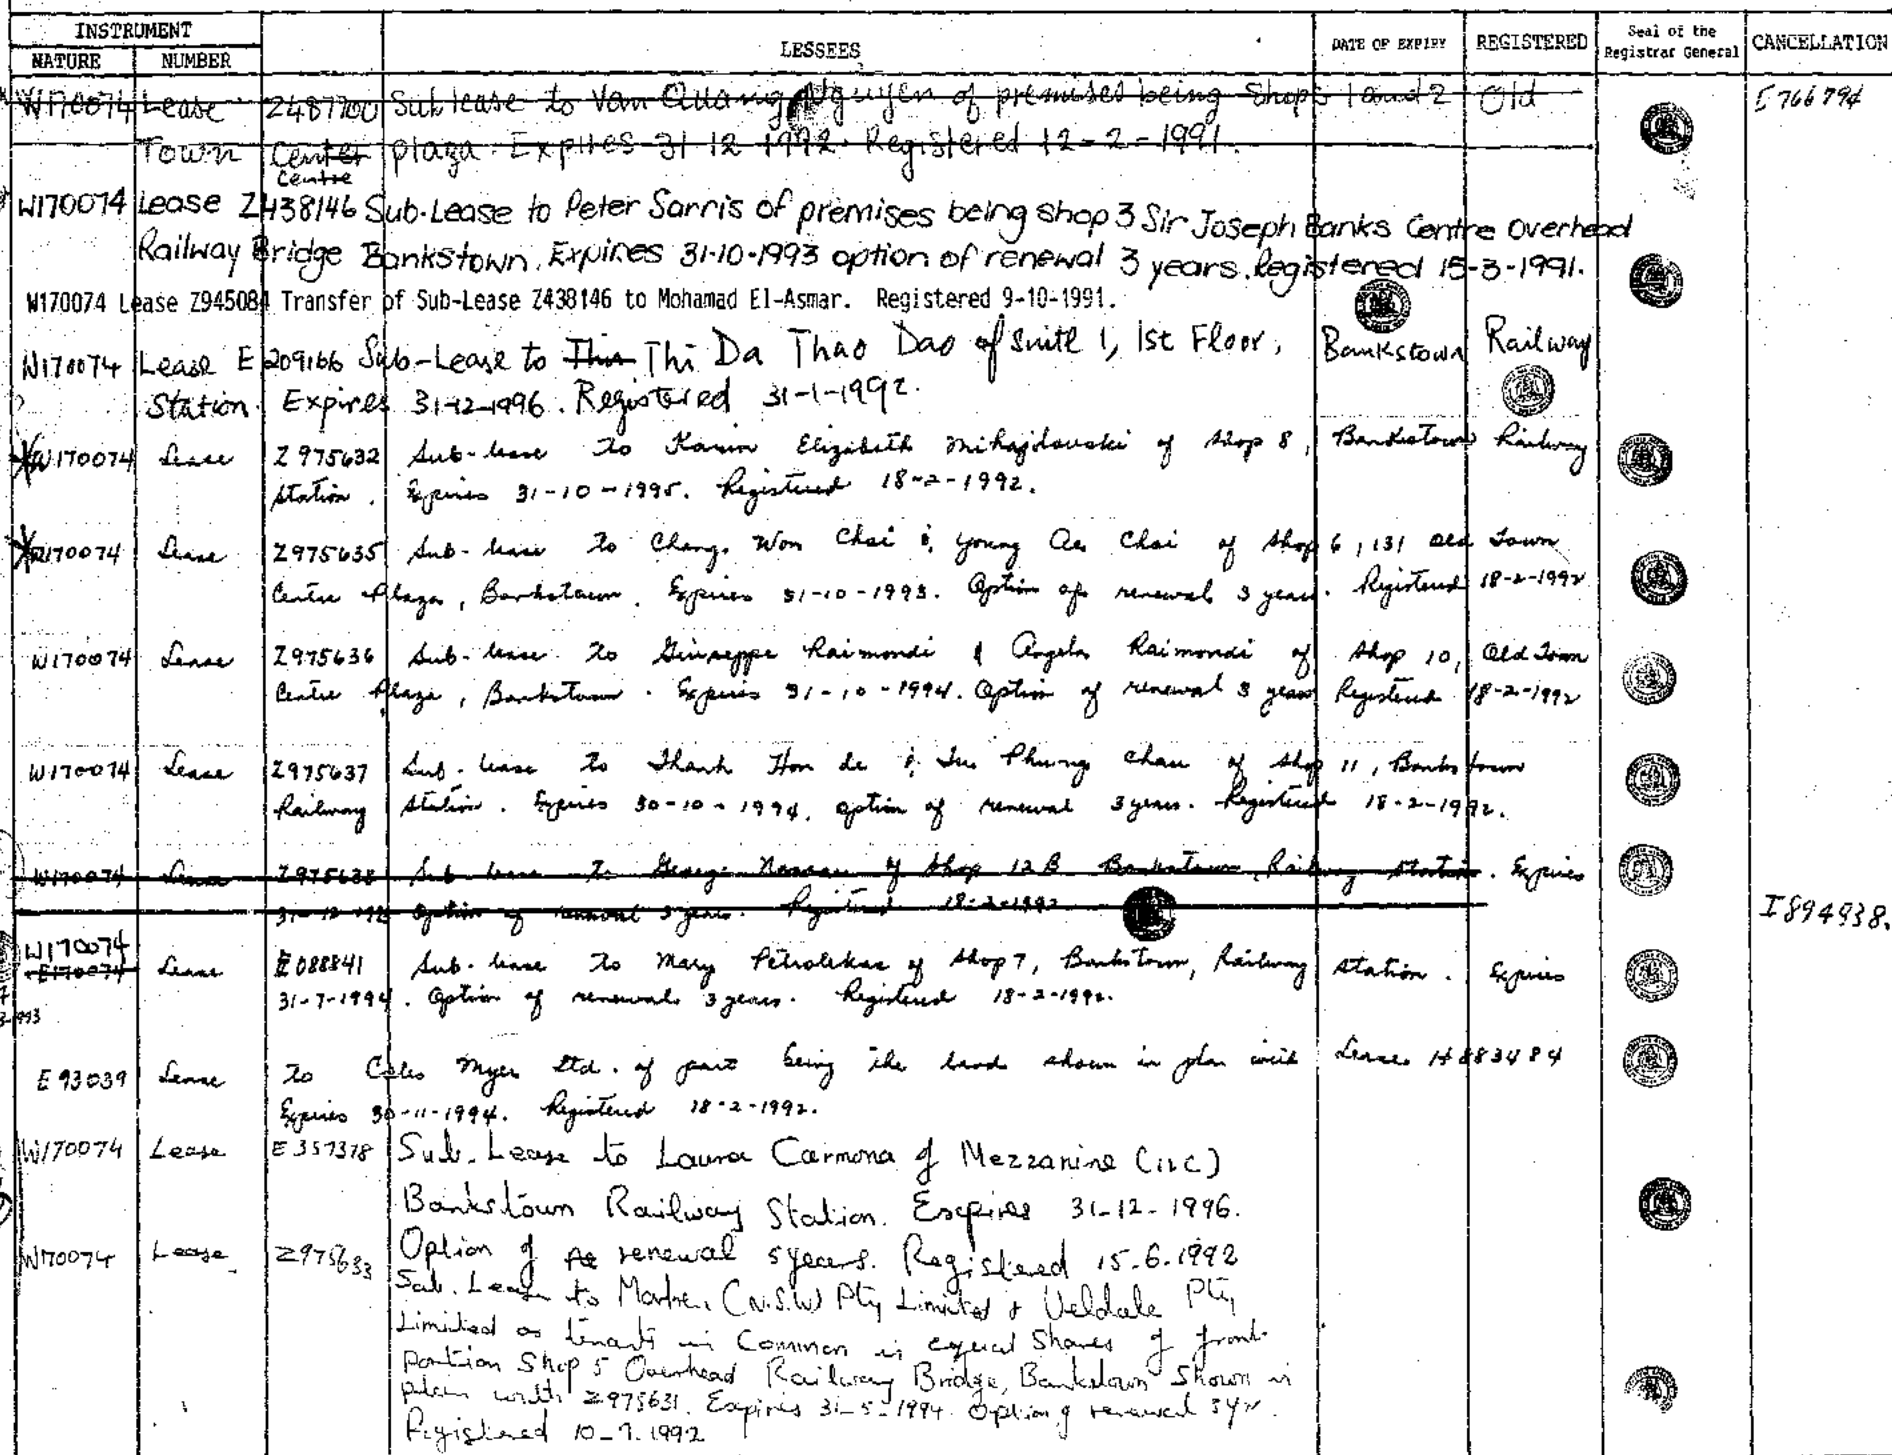 INSTRUMENT
NATURE NUMBER LESSEES DATE OF EXPIRY REGISTERED Seal of the Registrar General CANCELLATION
W170074 Lease Z487700 Sublease to Van Quang Nguyen of premises being Shops 1 and 2 Old E766794
Town Center plaza. Expires 31 12 1992. Registered 12-2-1991.
Centre
W170074 Lease Z438146 Sub-Lease to Peter Sarris of premises being shop 3 Sir Joseph Banks Centre Overhead
Railway Bridge Bankstown. Expires 31-10-1993 option of renewal 3 years. Registered 15-3-1991.
W170074 Lease Z945084 Transfer of Sub-Lease Z438146 to Mohamad El-Asmar. Registered 9-10-1991.
W170074 Lease E209166 Sub-Lease to Thi Da Thao Dao of Suite 1, 1st Floor, Bankstown Railway
Station. Expires 31-12-1996. Registered 31-1-1992.
W170074 Lease Z975632 Sub-lease to Karin Elizabeth Mihajlovski of Shop 8, Bankstown Railway
Station. Expires 31-10-1995. Registered 18-2-1992.
W170074 Lease Z975635 Sub-lease to Chang Won Choi & Young Ae Choi of Shop 6, 131 Old Town
Centre Plaza, Bankstown. Expires 31-10-1993. Option of renewal 3 years. Registered 18-2-1992
W170074 Lease Z975636 Sub-lease to Giuseppe Raimondi & Angela Raimondi of Shop 10, Old Town
Centre Plaza, Bankstown. Expires 31-10-1994. Option of renewal 3 years Registered 18-2-1992
W170074 Lease Z975637 Sub-lease to Thanh Hon de & Tu Phung Chau of Shop 11, Bankstown
Railway Station. Expires 30-10-1994. option of renewal 3 years. Registered 18-2-1992.
W170074 Lease Z975638 Sub-lease to George of Shop 12B Bankstown Railway Station. Expires
Option of renewal 3 years. Registered 18-2-1992 I894938.
W170074
E170074 Lease E088841 Sub-lease to Mary Petrolekas of Shop 7, Bankstown, Railway Station. Expires
31-7-1994. Option of renewal 3 years. Registered 18-2-1992.
E93039 Lease to Coles Myer Ltd. of part being the land shown in plan with Lease H883484
Expires 30-11-1994. Registered 18-2-1992.
W170074 Lease E357378 Sub. Lease to Laura Carmona of Mezzanine (12C)
Bankstown Railway Station. Expires 31-12-1996.
Option of renewal 5 years. Registered 15.6.1992
W170074 Lease Z975633 Sub. Lease to (N.S.W) Pty Limited & Veldale Pty
Limited as tenants in Common in equal Shares of front
portion Shop 5 Overhead Railway Bridge, Bankstown Shown in
plan with Z975631. Expires 31-5-1994. Option of renewal 3yr.
Registered 10-7-1992